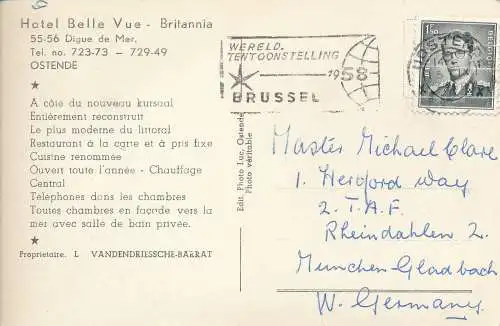 Hotel Belle Vue - Britannia
55-56 Digue de Mer.
Tel. no. 723-73 - 729-49
OSTENDE
A côte du nouveau kursaal
Entiérement reconstruit
Le plus moderne du littoral
Restaurant à la carte et à prix fixe
Cuisine renommée
Ouvert toute l'année - Chauffage
Central
Telephones dans les chambres
Toutes chambres en façade vers la
mer avec salle de bain privée.
Propriétaire. L VANDENDRIESSCHE-BARRAT
Edit. Photo Luc, Ostende
Photo véritable
WERELD.
TENTOONSTELLING
1958
BRUSSEL
1F50
Master Michael Clare
1. Hereford Way
2. T.A.F.
Rheindahlen 2.
München Gladbach
W. Germany